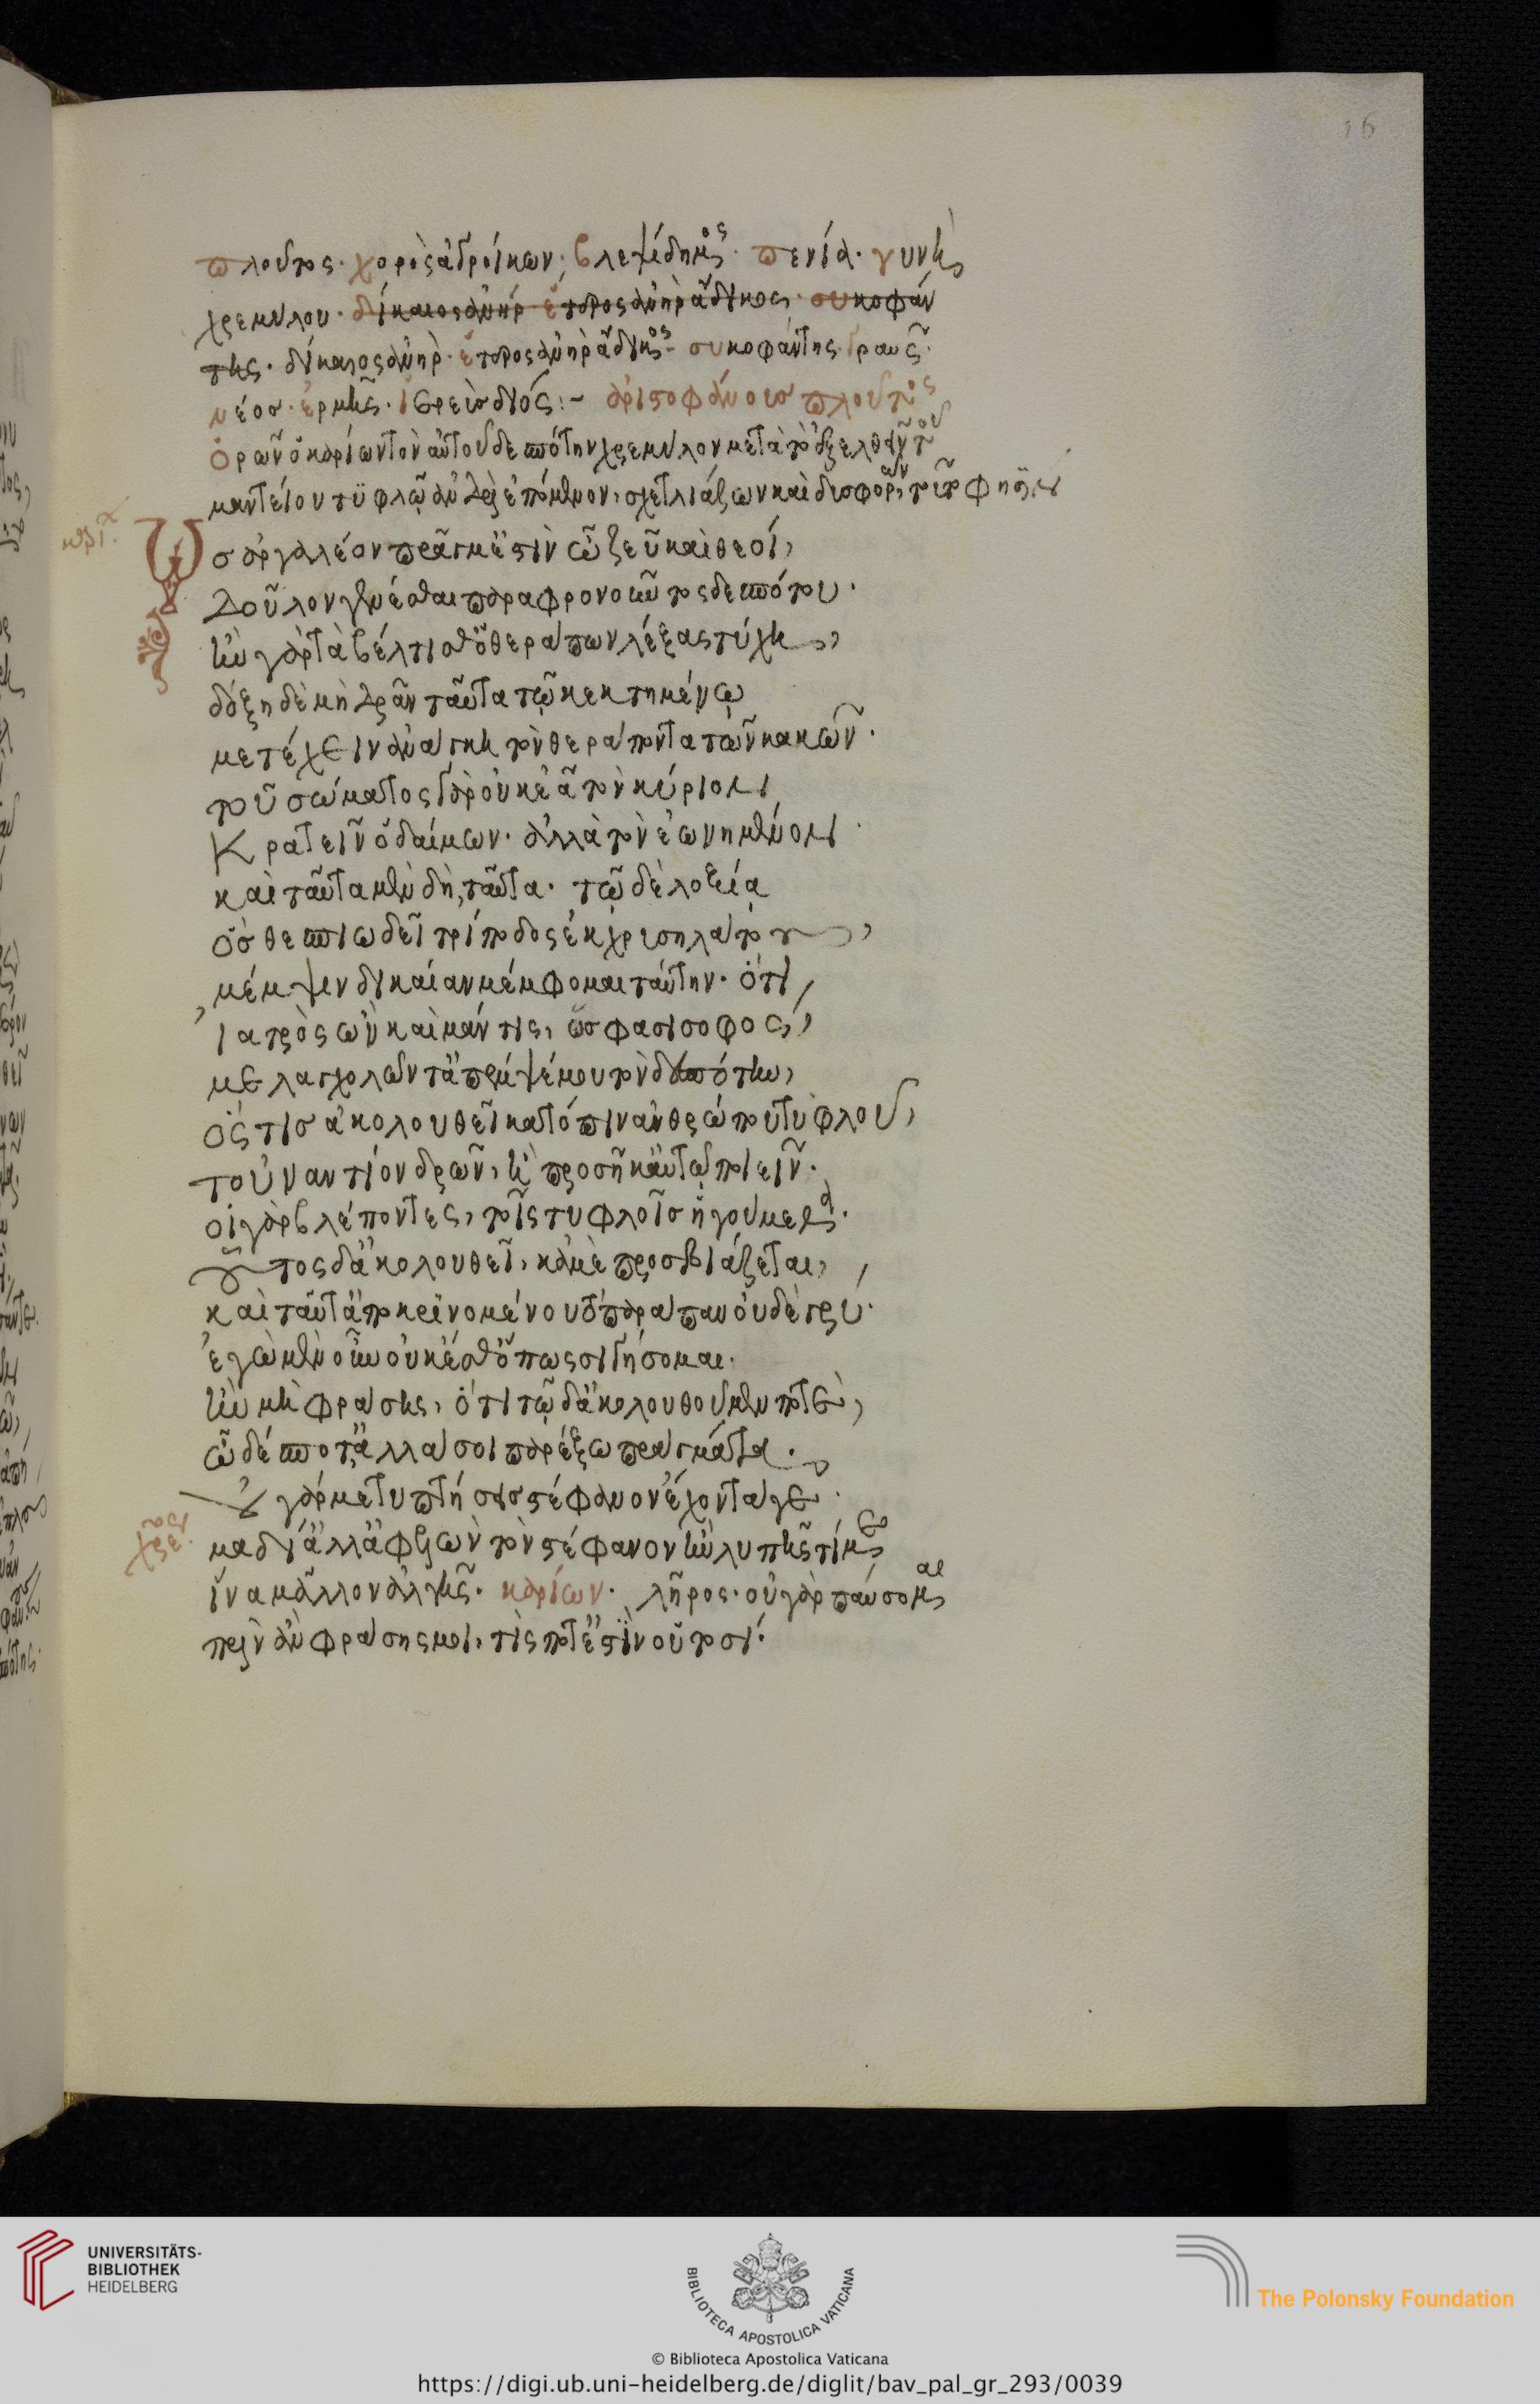 16
πλοῦτος. χορὸς ἀγροίκων. βλεψίδημος. πενία. γυνὴ
χρεμύλου. δίκαιος ἀνήρ. ἕτερος ἀνὴρ ἄδικος. συκοφάν
της. δίκαιος ἀνήρ. ἕτερος ἀνὴρ ἄδικος. συκοφάντης. γραῦς.
νέος. ἑρμῆς. ἱερεὺς διός :- ἀριστοφάνους πλοῦτος
ὁρῶν ὁ καρίων τὸν αὐτοῦ δεσπότην χρεμύλον μετὰ τὸ ἐξελθεῖν τοῦ
μαντείου τυφλῷ ἀνδρὶ ἑπόμενον, σχετλιάζων καὶ δυσφορῶν, φησιν
καρίων.
Ὡς ἀργαλέον πρᾶγμ' ἐστὶν ὦ ζεῦ καὶ θεοὶ,
δοῦλον γενέσθαι παραφρονοῦντος δεσπότου.
ἢν γὰρ τὰ βέλτισθ' ὁ θεράπων λέξας τύχη,
δόξη δὲ μὴ δρᾶν ταῦτα τῷ κεκτημένῳ
μετέχειν ἀνάγκη τὸν θεράποντα τῶν κακῶν.
τοῦ σώματος γὰρ οὐκ ἐᾷ τὸν κύριον
κρατεῖν ὁ δαίμων. ἀλλὰ τὸν ἐωνημένον.
καὶ ταῦτα μὲν δὴ, ταῦτα. τῷ δὲ λοξίᾳ
ὃς θεσπιῳδεῖ τρίποδος ἐκ χρυσηλάτου,
μέμψιν δικαίαν μέμφομαι ταύτην. ὅτι
ἰατρὸς ὢν καὶ μάντις, ὥς φασι σοφὸς,
μελαγχολῶντ' ἀπέπεμψέ μου τὸν δεσπότην,
ὅστις ἀκολουθεῖ κατόπιν ἀνθρώπου τυφλοῦ,
τοὐναντίον δρῶν, ἢ προσῆκ' αὐτῷ ποιεῖν.
οἱ γὰρ βλέποντες, τοῖς τυφλοῖς ἡγούμεθα.
οὗτος δ' ἀκολουθεῖ, κἀμὲ προσβιάζεται,
καὶ ταῦτ' ἀποκρινομένου τὸ παράπαν οὐδὲ γρύ.
ἐγὼ μὲν οὖν οὐκ ἔσθ' ὅπως σιγήσομαι.
ἢν μὴ φράσης, ὅτι τῷδ' ἀκολουθοῦμέν ποτε,
ὦ δέσποτ', ἀλλά σοι παρέξω πράγματα.
οὐ γάρ με τυπτήσεις στέφανον ἔχοντά γε.
χρεμ.
μὰ δί' ἀλλ' ἀφελὼν τὸν στέφανον ἢν λυπῆς τί με
ἵνα μᾶλλον ἀλγῆς. καρίων. λῆρος. οὐ γὰρ παύσομαι
πρὶν ἂν φράσης μοι, τίς ποτ' ἐστὶν οὑτοσί.
UNIVERSITÄTS-
BIBLIOTHEK
HEIDELBERG
BIBLIOTECA APOSTOLICA VATICANA
The Polonsky Foundation
© Biblioteca Apostolica Vaticana
https://digi.ub.uni-heidelberg.de/diglit/bav_pal_gr_293/0039